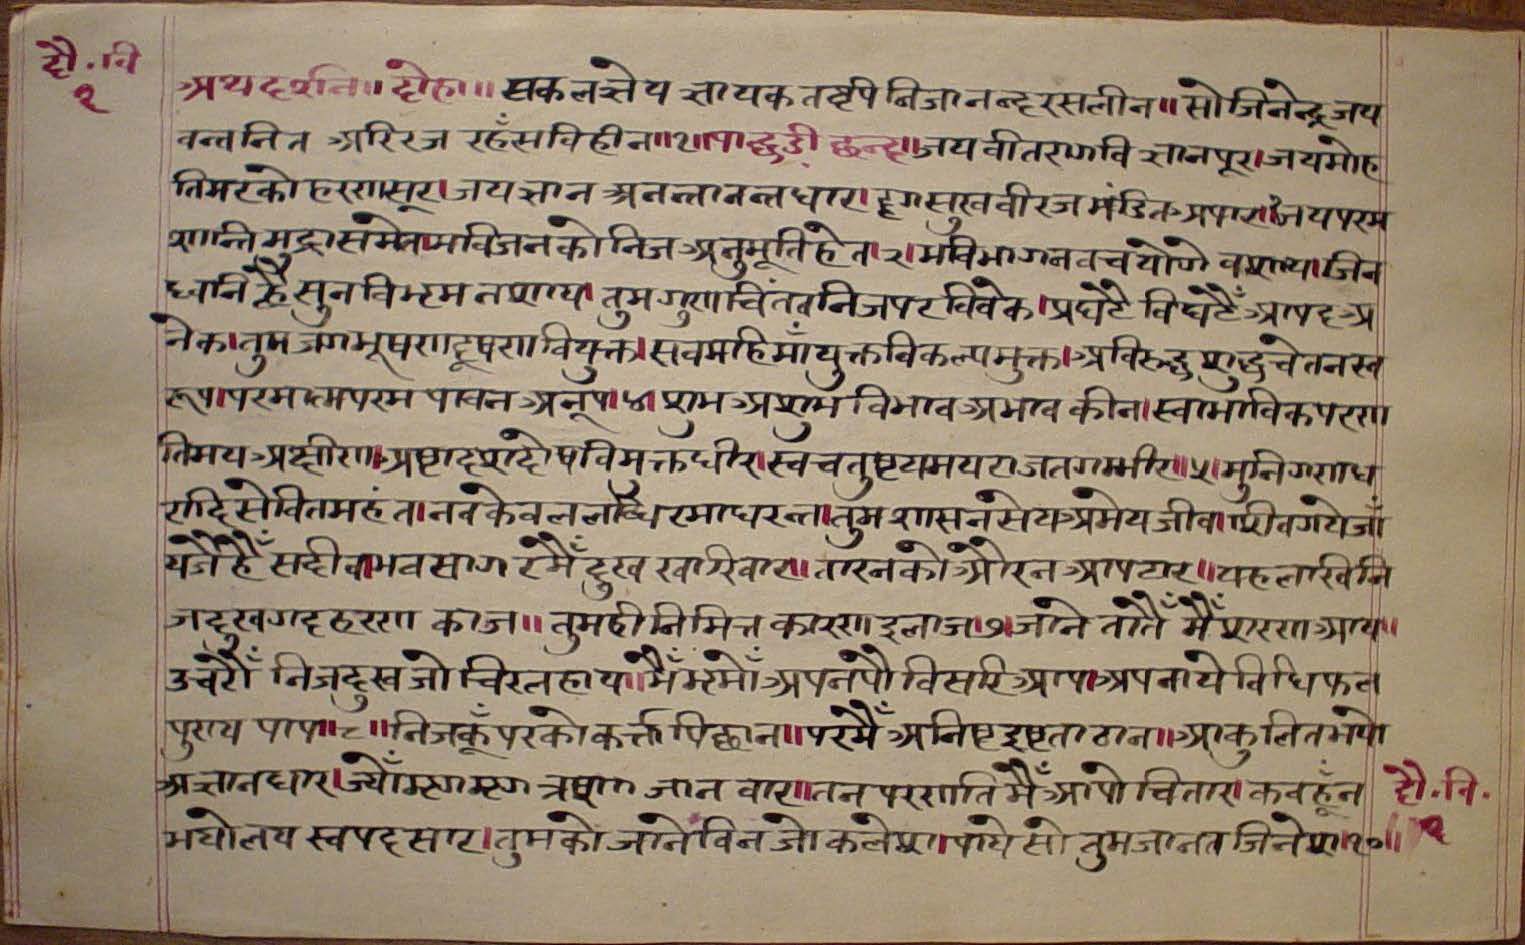 दौ॰वि
१
अथ दर्शन॥ दोहा॥ सकल ज्ञेय ज्ञायक तदपि निजानन्द रसलीन॥ सो जिनेन्द्र जय
वन्त नित अरिरज रहँस विहीन॥१॥ पाद्धडी छन्द॥ जय वीतराग विज्ञान पूर। जय मोह
तिमर को हरण सूर। जय ज्ञान अनन्तानन्त धार। दृग सुख वीरज मंडित अपार। जय परम
शान्ति मुद्रा समेत। भविजन को निज अनुभूति हेत।२। भवि भागन वच योगे वशाय। जिन
ध्वनि ह्वै सुन विभ्रम नशाय। तुम गुण चिंतत निज पर विवेक। प्रघटै विघटैँ आपद अ
नेक। तुम जग भूषण दूषण वियुक्त। सब महिमाँ युक्त विकल्प मुक्त। अविरुद्ध शुद्ध चेतन स्व
रूप। परमात्म परम पावन अनूप।४। शुभ अशुभ विभाव अभाव कीन। स्वाभाविक परण
तिमय अक्षीण। अष्टादश दोष विमुक्त धीर। स्व चतुष्टय मय राजत गम्भीर॥५। मुनि गणध
रादि सेवित महंत। नव केवल लब्धि रमा धरन्त। तुम शासन सेय अमेय जीव। शिव गये जाँ
य जै हैँ सदीव। भव सागर मैँ दुख खार वार। तारन को और न आप टार॥ यह लखि नि
ज दुख गद हरण काज॥ तुम ही निमित्त कारण इलाज।७। जाने तातैँ मैँ शरण आय॥
उचरौँ निज दुख जो चिर लहाय। मैँ भ्रमोँ अपनपौ विसारि आप। अपनाये विधि फल
पुण्य पाप॥८॥ निज कूँ पर को कर्त्ता पिछान॥ पर मैँ अनिष्ट इष्टता ठान॥ आकुलित भयो
अज्ञान धार। ज्योँ मृग मृग त्रष्णा जान वार। तन परणति मैँ आपो चितार। कबहूँ न
भयो लय स्व पद सार। तुम को जाने विन जो कलेश। पाये सो तुम जानत जिनेश।१०॥
दौ॰वि॰
१